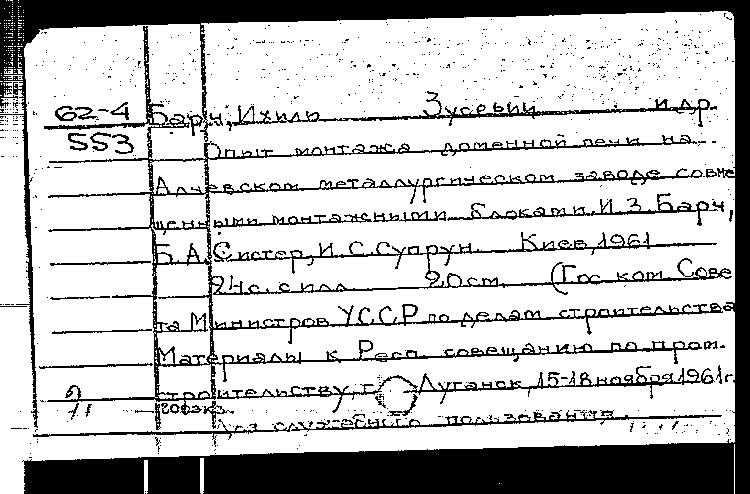 62-4 Барч, Ихиль Зусевич и др.
553 Опыт монтажа доменной печи на
Алчевском металлургическом заводе совме
щенными монтажными блоками. И.З. Барч,
Б.А. Систер, И.С. Супрун. Киев, 1961
24 с. с илл. 20 см. (Гос. ком. Сове
та Министров УССР по делам строительства
Материалы к Респ. совещанию по пром.
строительству, г. Луганск, 15-18 ноября 1961 г.
Для служебного пользования.